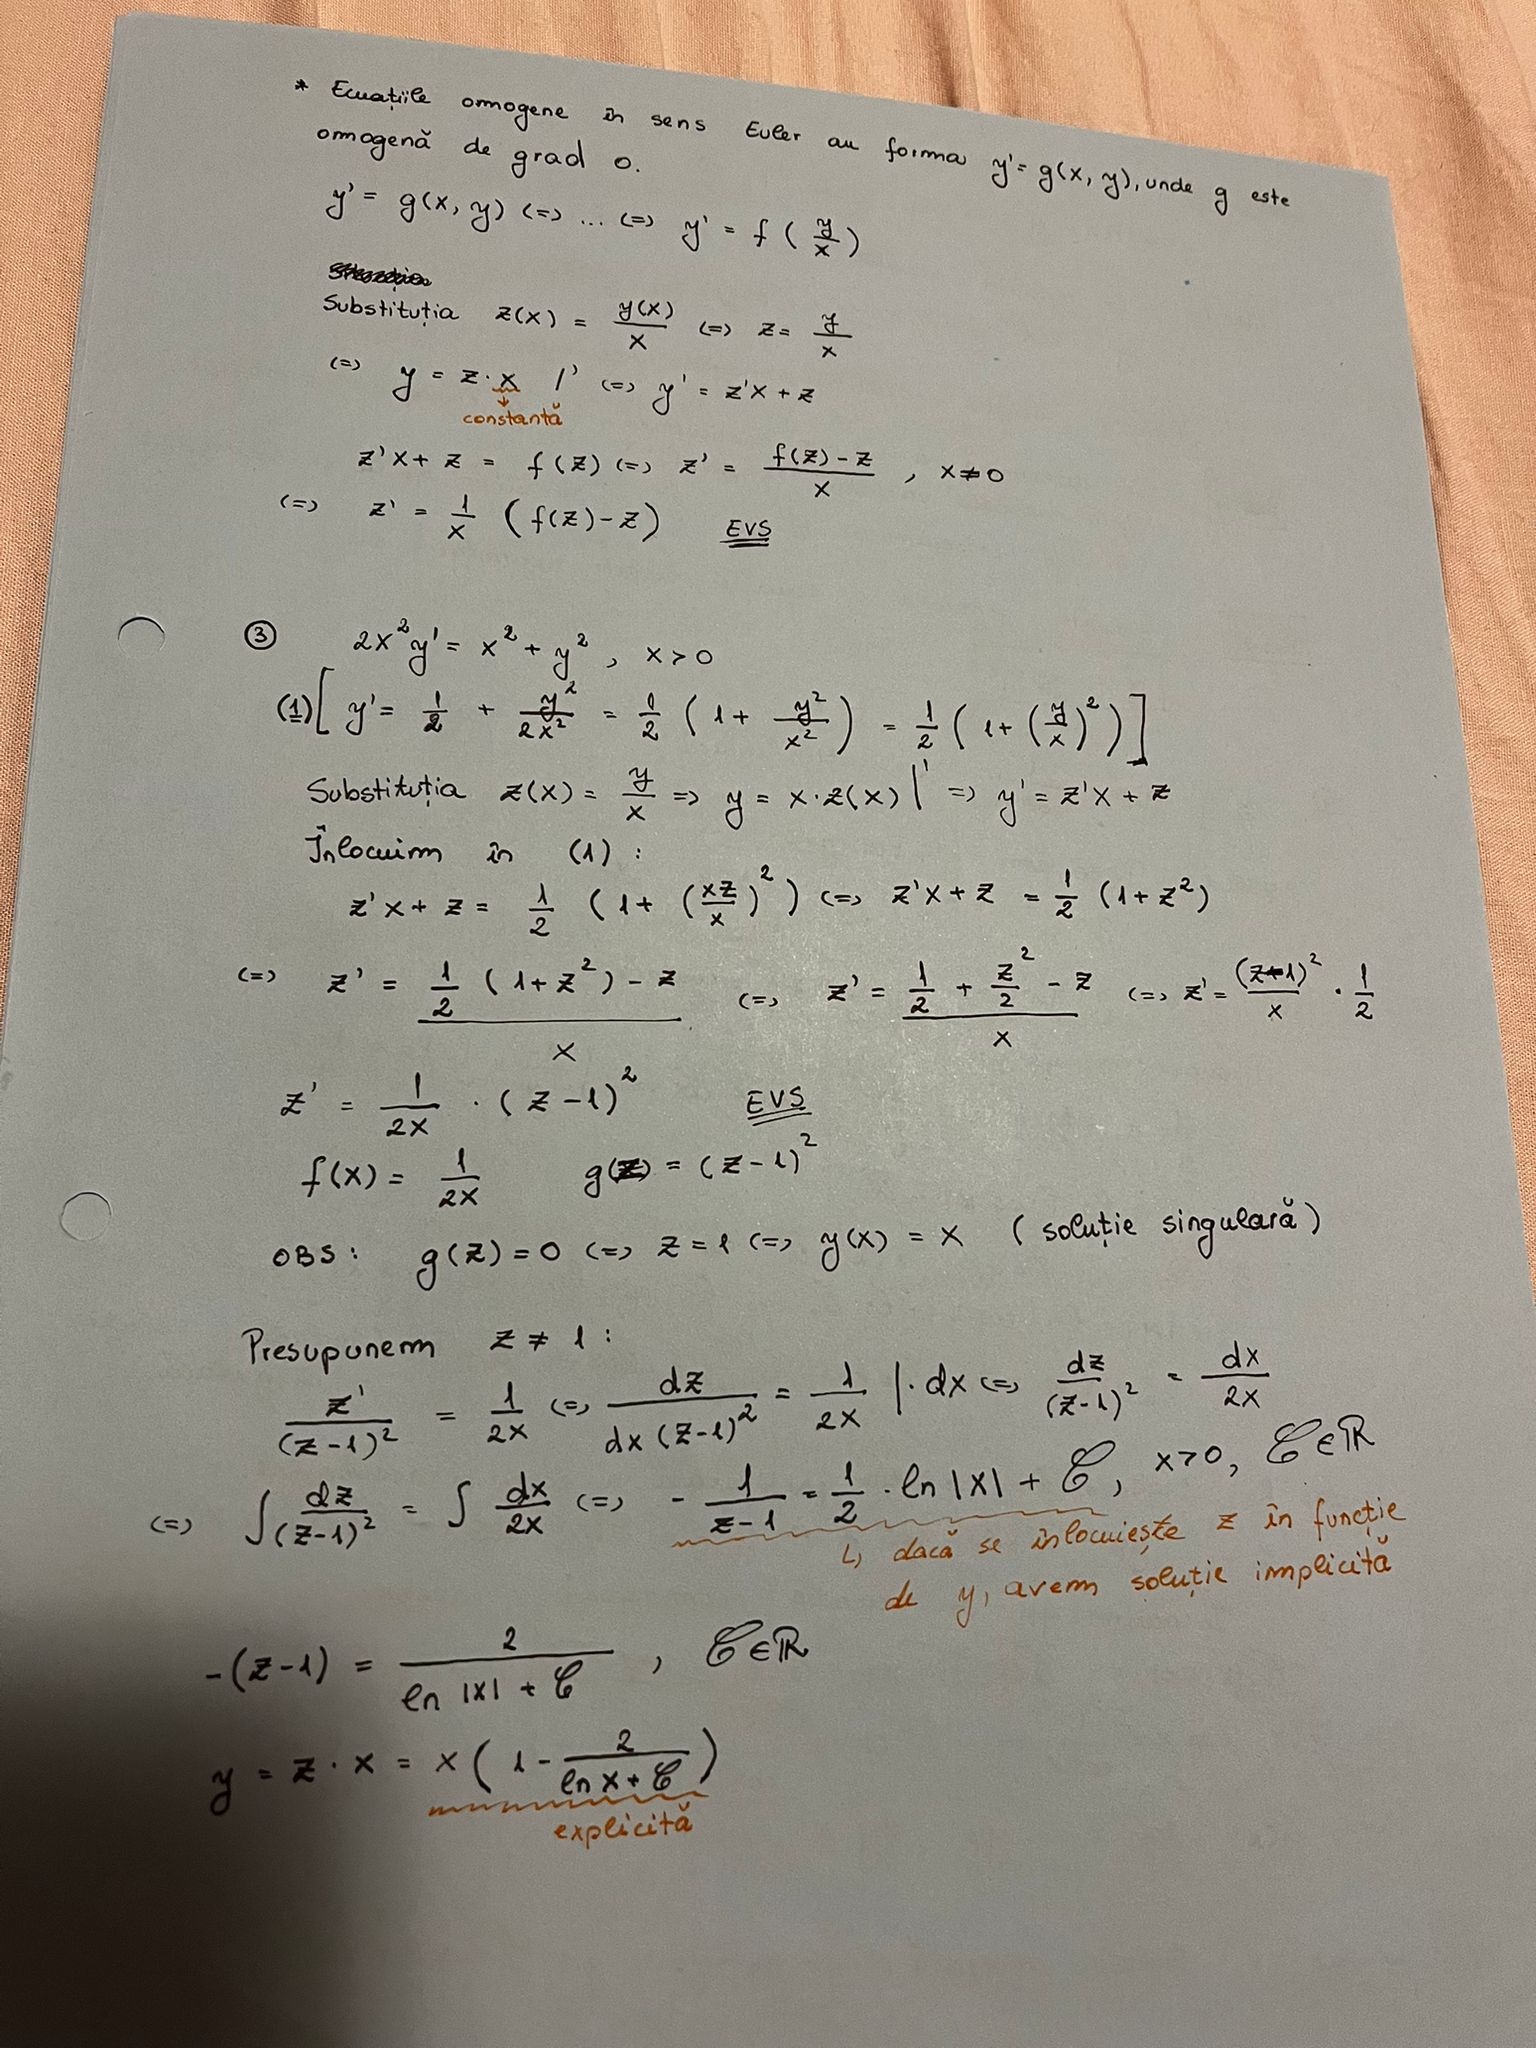 * Ecuațiile omogene în sens Euler au forma y' = g(x, y), unde g este
omogenă de grad 0.
y' = g(x, y) (=) ... (=) y' = f ( y/x )
Substituția z(x) = y(x)/x (=) z = y/x
(=) y = z · x |' (=) y' = z'x + z
constantă
z'x + z = f(z) (=) z' = (f(z) - z)/x , x ≠ 0
(=) z' = 1/x ( f(z) - z ) EVS
③ 2x²y' = x² + y² , x > 0
(1) [ y' = 1/2 + y²/2x² = 1/2 ( 1 + y²/x² ) = 1/2 ( 1 + (y/x)² ) ]
Substituția z(x) = y/x => y = x · z(x) |' => y' = z'x + z
Înlocuim în (1) :
z'x + z = 1/2 ( 1 + (xz/x)² ) (=) z'x + z = 1/2 (1 + z²)
(=) z' = (1/2 (1 + z²) - z)/x (=) z' = (1/2 + z²/2 - z)/x (=) z' = (z-1)²/x · 1/2
z' = 1/2x · ( z - 1)² EVS
f(x) = 1/2x g(z) = (z - 1)²
OBS : g(z) = 0 (=) z = 1 (=) y(x) = x ( soluție singulară )
Presupunem z ≠ 1 :
z'/(z-1)² = 1/2x (=) dz/dx (z-1)² = 1/2x | · dx (=) dz/(z-1)² = dx/2x
(=) ∫ dz/(z-1)² = ∫ dx/2x (=) - 1/z-1 = 1/2 · ln |x| + C, x > 0, C ∈ ℝ
↳ dacă se înlocuiește z în funcție
de y, avem soluție implicită
-(z-1) = 2/ln |x| + C , C ∈ ℝ
y = z · x = x ( 1 - 2/ln x + C )
explicită